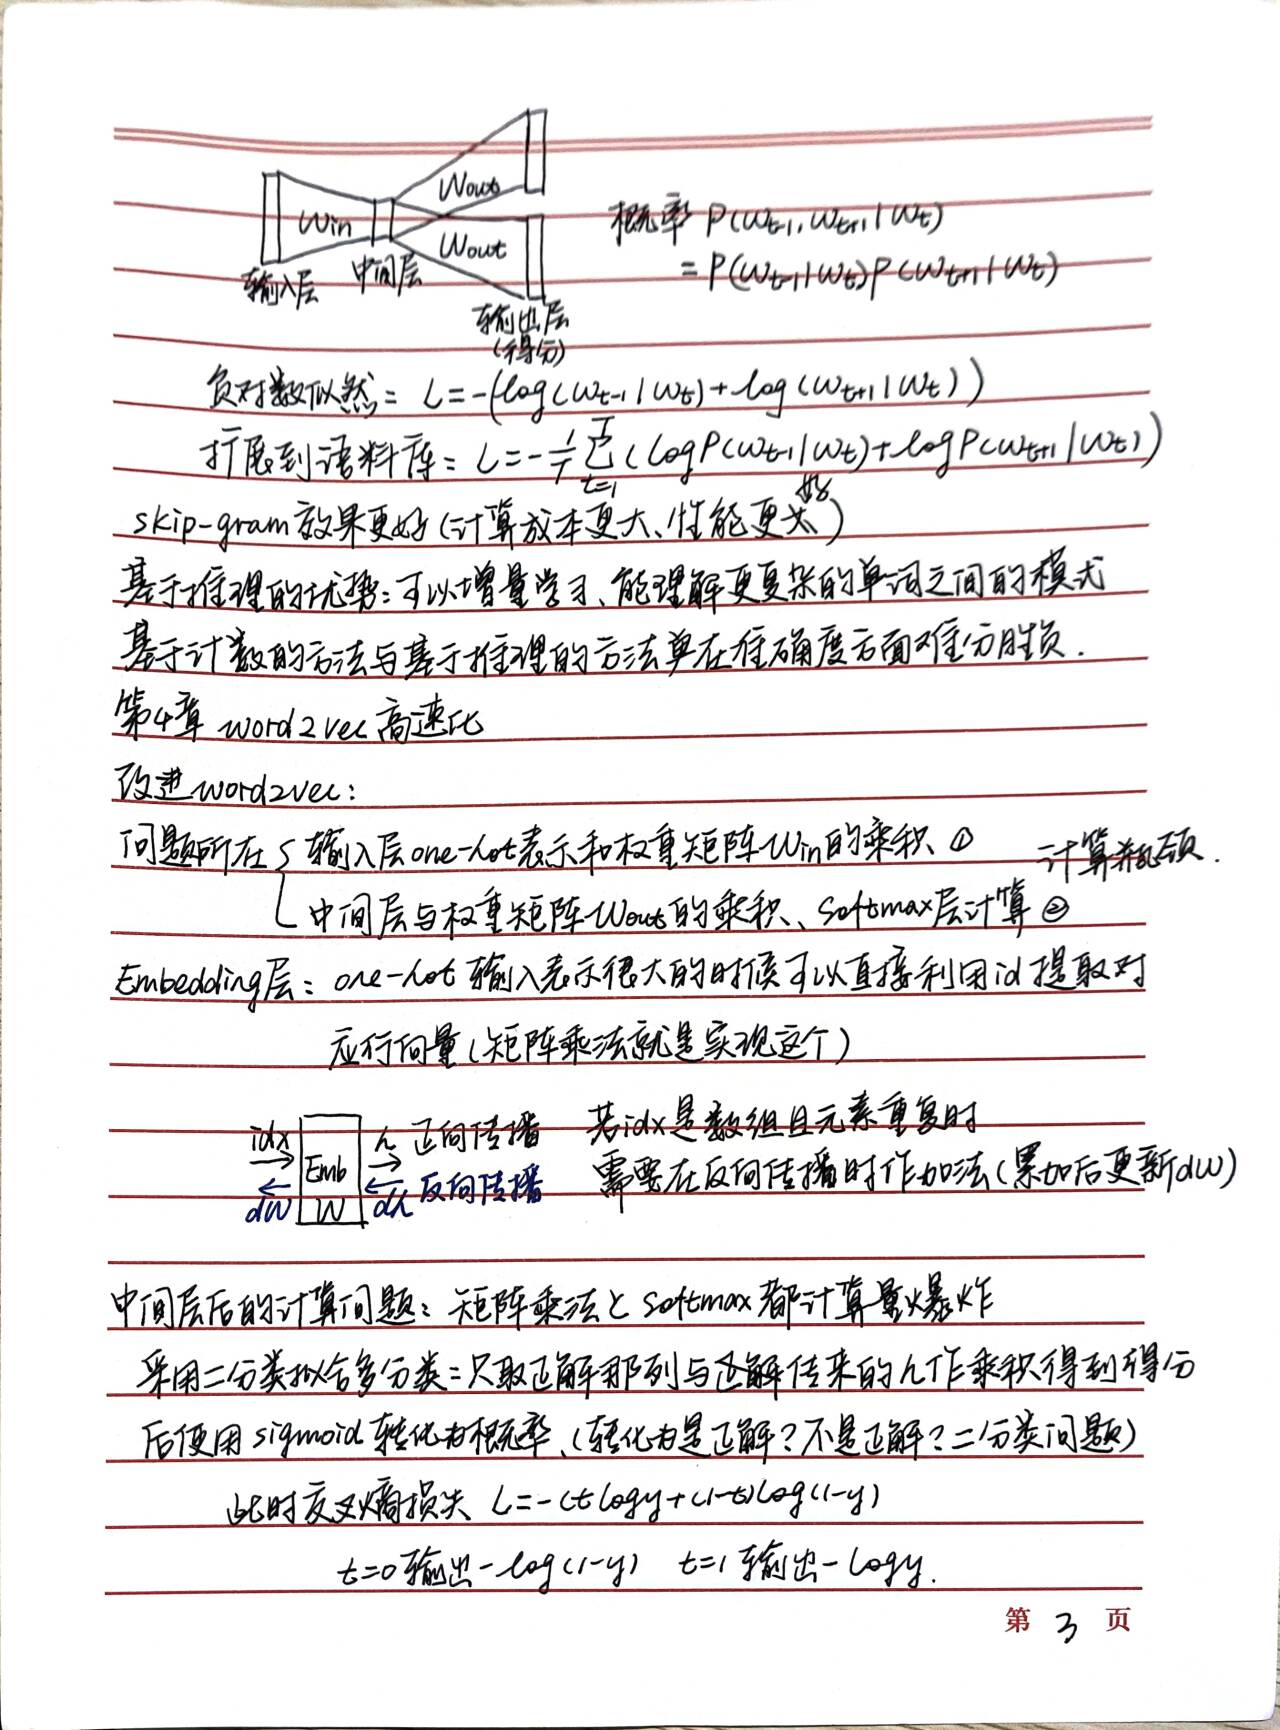 Wout
Win
Wout
输入层 中间层
输出层
(得分)
概率 P(Wt-1,Wt+1|Wt)
= P(Wt-1|Wt)P(Wt+1|Wt)
负对数似然: L=-(log(Wt-1|Wt)+log(Wt+1|Wt))
扩展到语料库: L=-1/T T∑t=1 (logP(Wt-1|Wt)+logP(Wt+1|Wt))
skip-gram效果更好(计算成本更大、性能更好)
基于推理的优势:可以增量学习、能理解更复杂的单词之间的模式
基于计数的方法与基于推理的方法单在准确度方面难分胜负.
第4章 word2vec高速化
改进word2vec:
问题所在 { 输入层one-hot表示和权重矩阵Win的乘积 ①
计算瓶颈.
中间层与权重矩阵Wout的乘积、Softmax层计算 ②
Embedding层: one-hot 输入表示很大的时候可以直接利用id提取对
应行向量(矩阵乘法就是实现这个)
idx Emb W h 正向传播
dW dh 反向传播
若idx是数组且元素重复时
需要在反向传播时作加法(累加后更新dW)
中间层后的计算问题: 矩阵乘法与softmax都计算量爆炸
采用二分类拟合多分类:只取正解那列与正解传来的h作乘积得到得分
后使用sigmoid转化为概率、(转化为是正解?不是正解?二分类问题)
此时交叉熵损失 L=-(tlogy+(1-t)log(1-y)
t=0输出-log(1-y) t=1输出-logy.
第 3 页